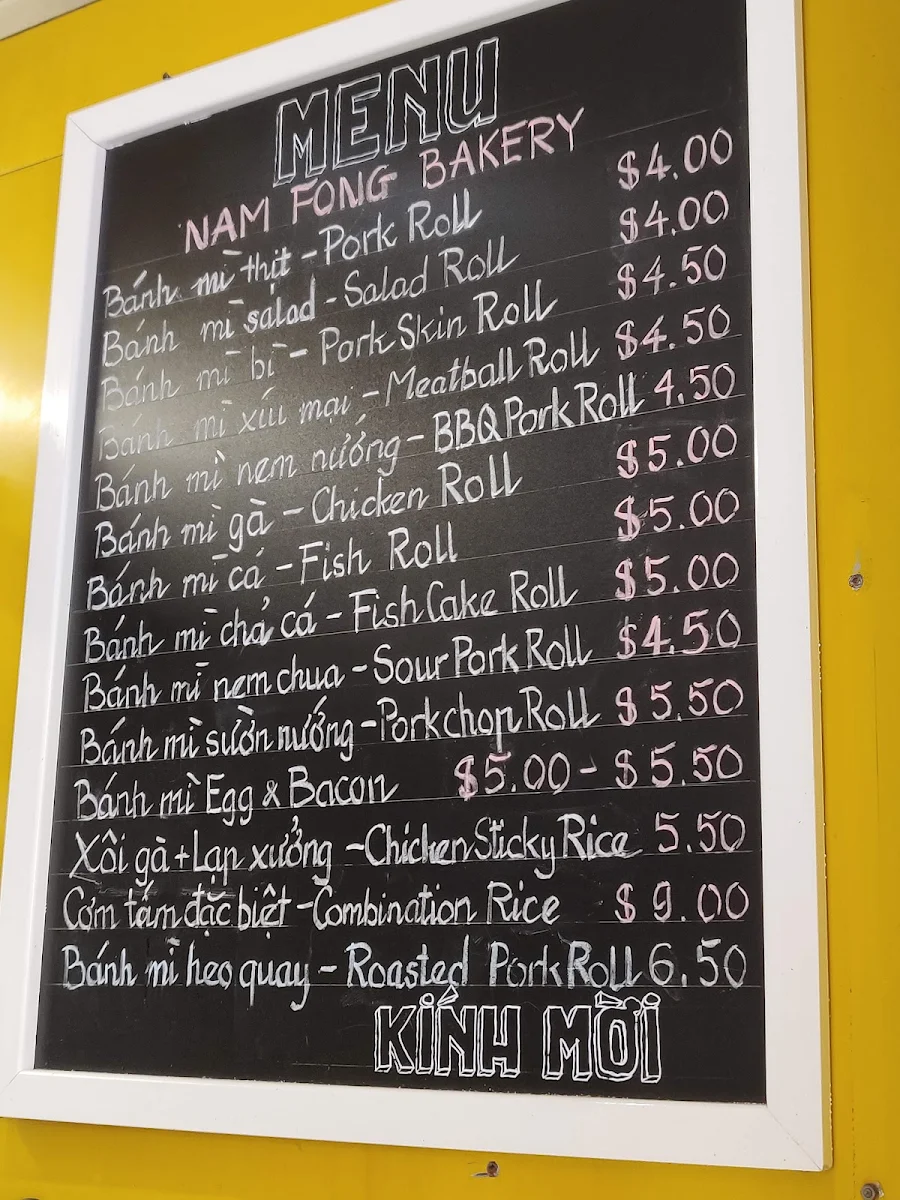 MENU
NAM FONG BAKERY
Bánh mì thịt - Pork Roll $4.00
Bánh mì salad - Salad Roll $4.00
Bánh mì bì - Pork Skin Roll $4.50
Bánh mì xíu mại - Meatball Roll $4.50
Bánh mì nem nướng - BBQ Pork Roll 4.50
Bánh mì gà - Chicken Roll $5.00
Bánh mì cá - Fish Roll $5.00
Bánh mì chả cá - Fish Cake Roll $5.00
Bánh mì nem chua - Sour Pork Roll $4.50
Bánh mì sườn nướng - Porkchop Roll $5.50
Bánh mì Egg & Bacon $5.00 - $5.50
Xôi gà + Lạp xưởng - Chicken Sticky Rice 5.50
Cơm tấm đặc biệt - Combination Rice $9.00
Bánh mì heo quay - Roasted Pork Roll 6.50
KÍNH MỜI